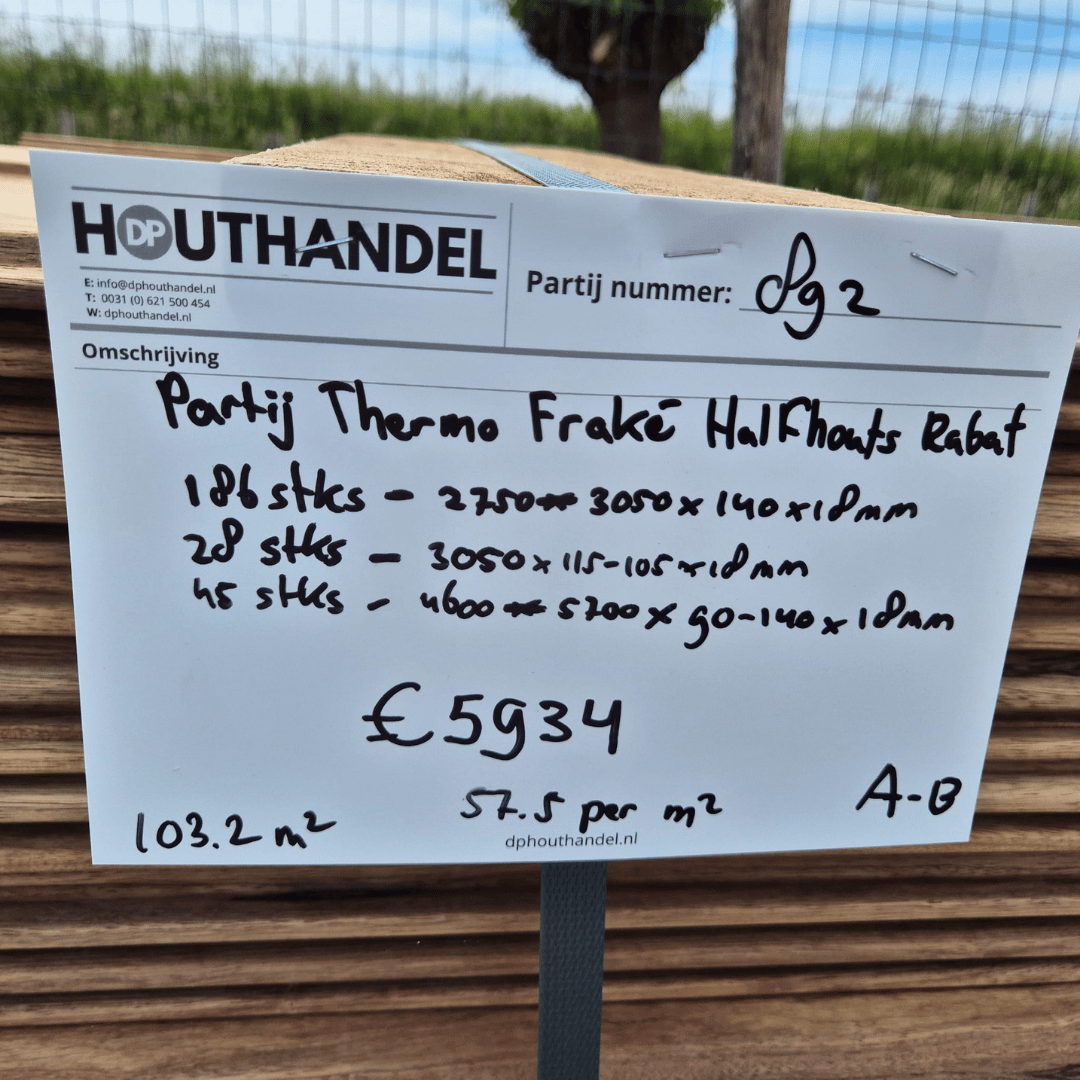 HOUTHANDEL
DP
E: info@dphouthandel.nl
T: 0031 (0) 621 500 454
W: dphouthandel.nl
Partij nummer: 892
Omschrijving
Partij Thermo Fraké Halfhouts Rabat
186 stks - 2750 - 3050 x 140 x 18mm
28 stks - 3050 x 115-105 x 18mm
45 stks - 4600 - 5700 x 90-140 x 18mm
€ 5934
103.2 m² 57.5 per m² A-B
dphouthandel.nl